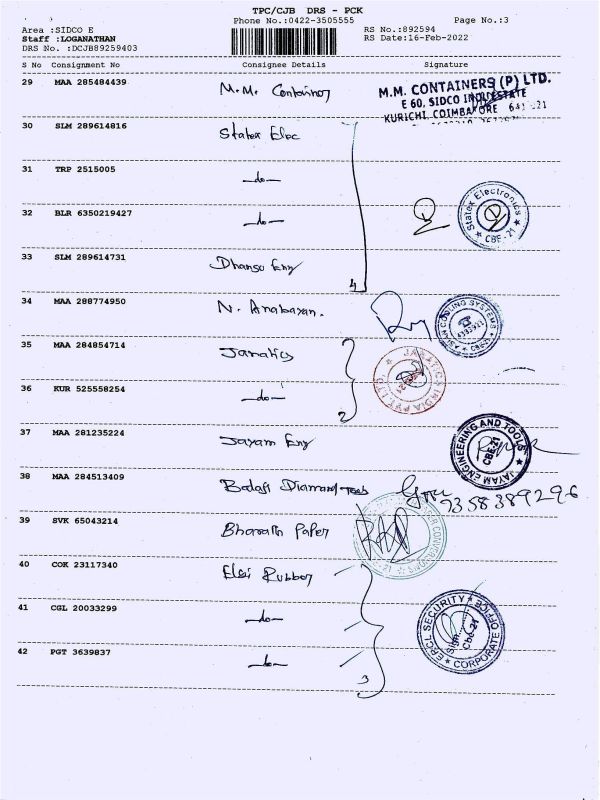 TPC/CJB DRS - PCK
Phone No.:0422-3505555
Page No.:3
Area :SIDCO E
RS No.:892594
Staff :LOGANATHAN
RS Date:16-Feb-2022
DRS No. :DCJB89259403
S No Consignment No Consignee Details Signature
29 MAA 285484439 M.M. Container
M.M. CONTAINERS (P) LTD.
E 60, SIDCO INDL ESTATE
KURICHI, COIMBATORE
30 SLM 289614816 Statex Elec
31 TRP 2515005 -do-
32 BLR 6350219427 -do-
Statex Electronics
CBE-21
33 SLM 289614731 Dhanso Eng
4
34 MAA 288774950 N. Anabayan.
COOLING SYSTEMS
35 MAA 284854714 Janatics
JANATICS INDIA PVT LTD
36 KUR 525558254 -do-
2
37 MAA 281235224 Jayam Eng
JAYAM ENGINEERING AND TOOLS
CBE-21
38 MAA 284513409 Balaji Diamond Tools
9358389296
39 SVK 65043214 Bharath Paper
40 COK 23117340 Elgi Rubber
41 CGL 20033299 -do-
ERCL SECURITY
Sign
Cbe-21
CORPORATE OFFICE
42 PGT 3639837 -do-
3